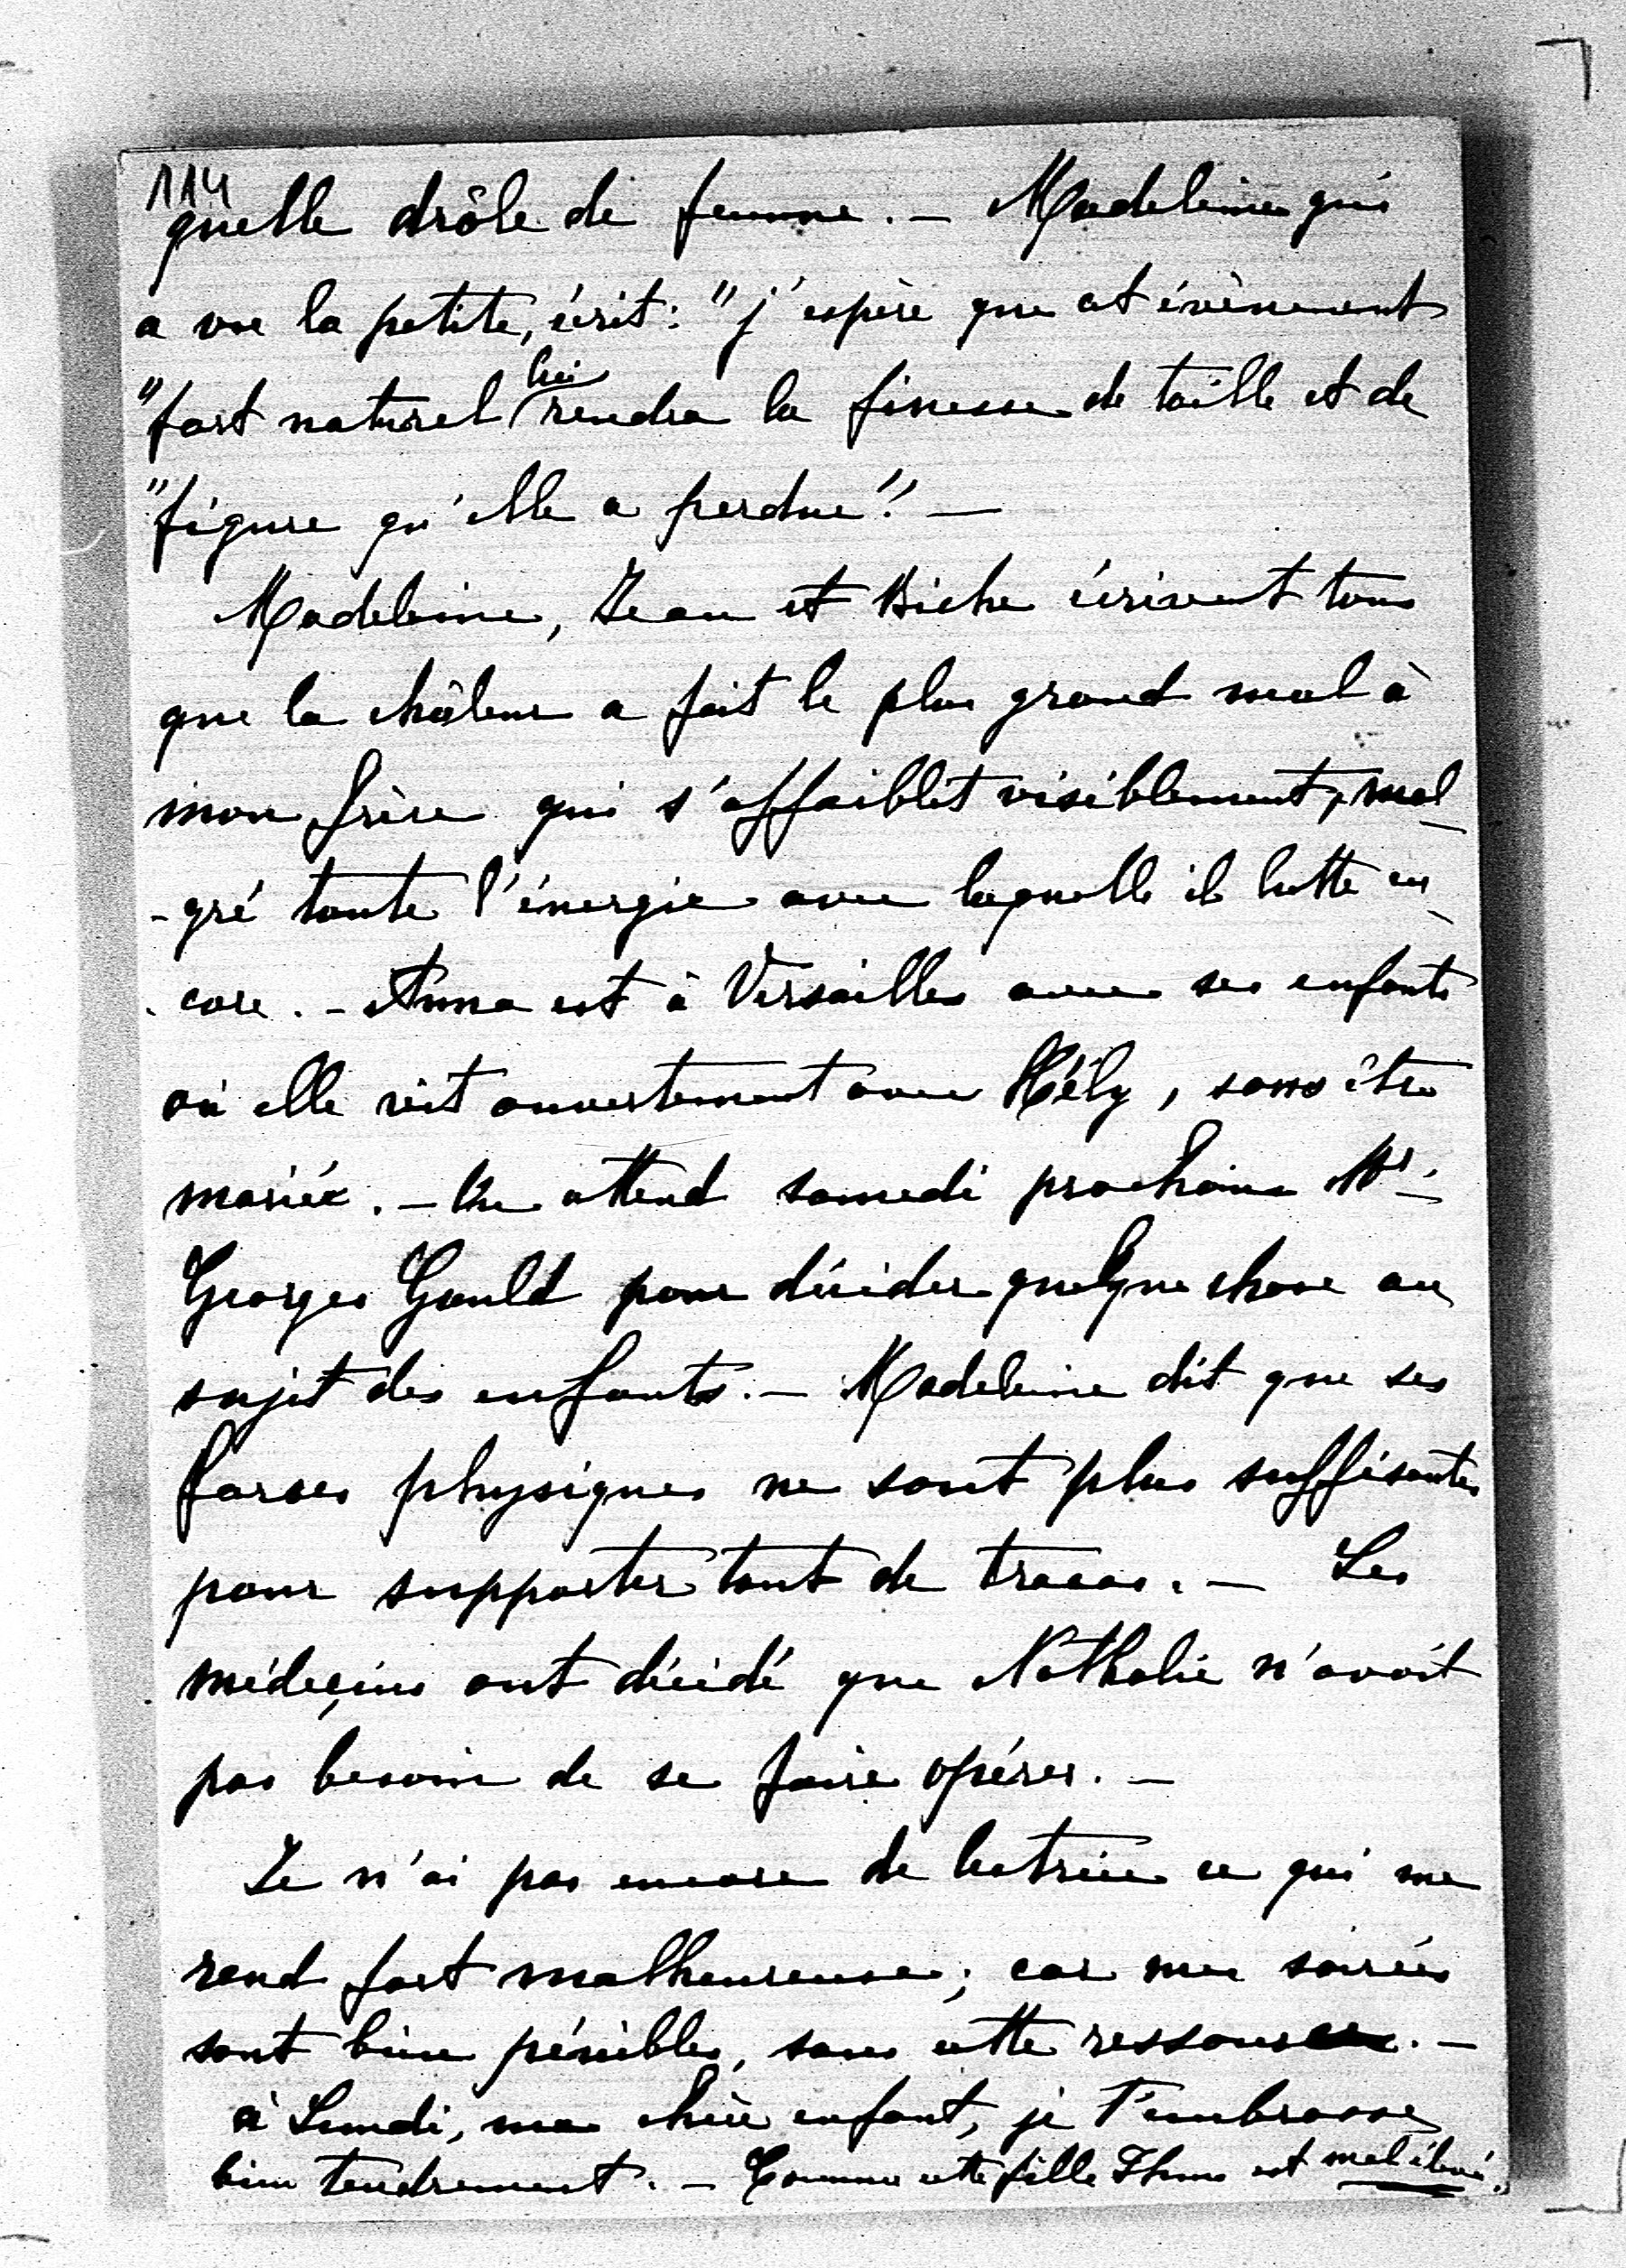 114
quelle drôle de femme. — Madeleine qui
a vu la petite, écrit: "j'espère que cet évènement
"fort naturel lui rendra la finesse de taille et de
"figure qu'elle a perdue". —
Madeleine, Jean et Biche écrivent tous
que la châleur a fait le plus grand mal à
mon frère qui s'affaiblit visiblement, mal-
-gré toute l'énergie avec laquelle il lutte en-
-core. — Anna est à Versailles avec ses enfants
où elle vit ouvertement avec Hély, sans être
mariée. — On attend samedi prochain Mr.
Georges Gould pour décider quelque chose au
sujet des enfants. — Madeleine dit que ses
forces physiques ne sont plus suffisantes
pour supporter tant de tracas. — Les
médecins ont décidé que Nathalie n'avait
pas besoin de se faire opérer. —
Je n'ai pas encore de lectrice ce qui me
rend fort malheureuse; car mes soirées
sont bien pénibles, sans cette ressource. —
à Lundi, ma chère enfant, je t'embrasse
bien tendrement. — Comme cette fille est mal élevée.